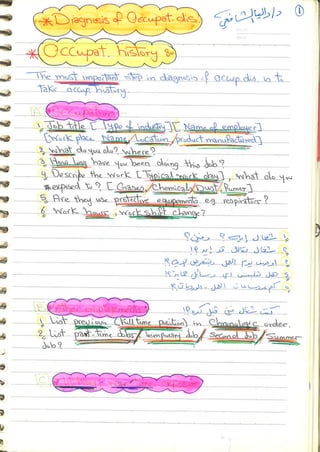 1
د/داليا الشافعي
* Diagnosis of Occupat. dis.
* Occupat. history :-
The most important step in diagnosis of occup. dis. is to
take occup. history.
A Occupation
1 Job Title [Type of industry] [Name of employer]
[Work place Name / Location / product manufactured]
2 What do you do? where?
3 How long have you been doing this Job?
4 Describe the work [Typical work day], What do you
exposed to? [Gases / Chemicals / Dust / Fumes]
5 Are they use protective equipments e.g. respirator?
6 Work hours, work shift change?
1 شغال ايه؟ وفين؟
2 شغال بقالك قد ايه؟
B
كنت شغال فين قبل كده؟
1 List previous (full time position) in Chronologic order.
2 List part-time Jobs / temporary Job / Second Job / Summer
Job?
C